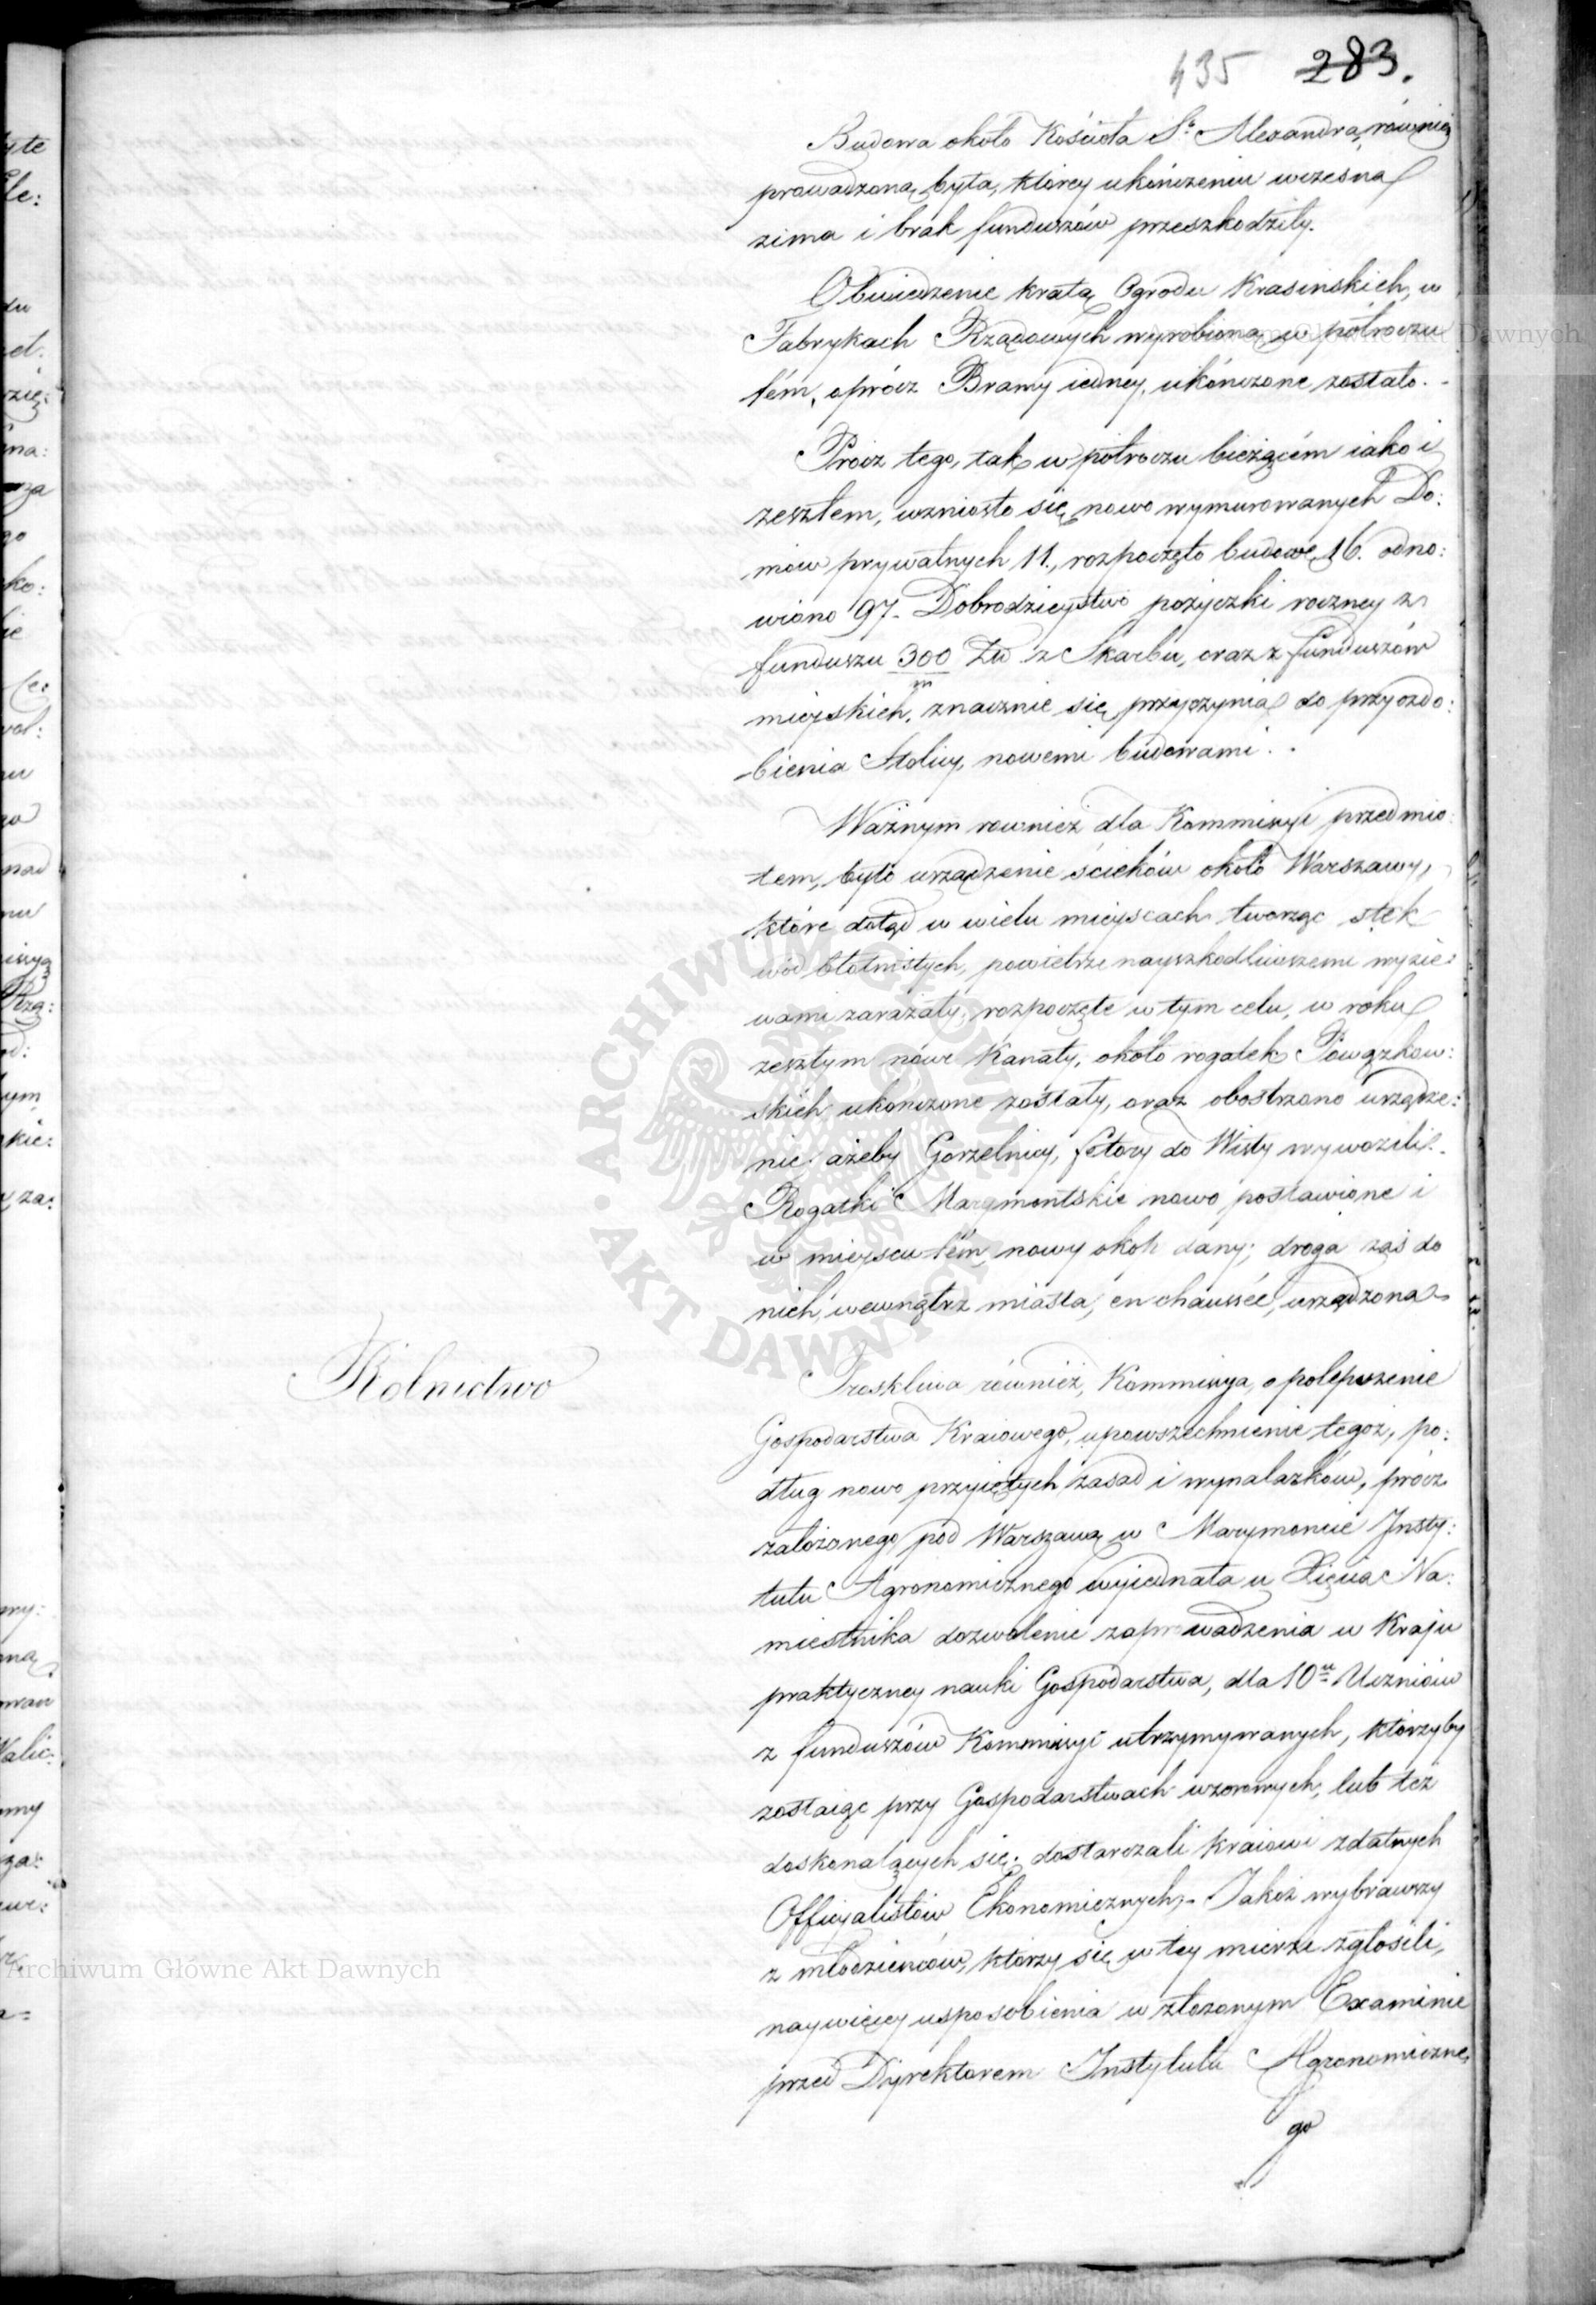 435 283.
Budowa około Kościoła Sgo Alexandra, również
prowadzoną była, którey ukończeniu wczesna
zima i brak funduszów przeszkodziły.
Obwiedzenie kratą Ogrodu Krasinskich, w
Fabrykach Rządowych wyrobioną, w półroczu
tém, oprócz Bramy iedney, ukończone zostało. -
Prócz tego, tak w półroczu bieżącém iako i
zeszłem, wzniosło się nowo wymurowanych Do:
mów prywatnych 11., rozpoczęto budowę 16. odno:
wiono 97. Dobrodzieystwo pożyczki roczney z
funduszu 300/m Zł z Skarbu, oraz z funduszów
mieyskich, znacznie się przyczynia do przyozdo:
bienia Stolicy, nowemi budowami. -
Ważnym rownież dla Kommissyi przedmio:
tem, było urządzenie ścieków około Warszawy,
które dotąd w wielu mieyscach tworząc stek
wód błotnistych, powietrze nayszkodliwszemi wyzie:
wami zarażały, rozpoczęte w tym celu, w roku
zeszłym nowe Kanały, około rogatek Powązkow:
skich, ukonczone zostały, oraz obostrzono urządze:
nie, ażeby Gorzelnicy, fetory do Wisły wywozili. -
Rogatki Marymontskie nowo postawione i
w mieyscu tém, nowy okop dany; droga zaś do
nich, wewnątrz miasta, en chaussée, urządzona.
Rolnictwo
Troskliwa również, Kommissya, o polepszenie
Gospodarstwa Kraiowego, upowszechnienie tegoż, po:
dług nowo przyiętych zasad i wynalazków, prócz
założonego pod Warszawą w Marymoncie Insty:
tutu Agronomicznego wyiednała u Xięcia Na:
miestnika dozwolenie zaprowadzenia w Kraju
praktyczney nauki Gospodarstwa, dla 10u Uczniów
z funduszów Kommissyi utrzymywanych, którzyby
zostaiąc przy Gospodarstwach wzorowych, lub też
doskonalących się, dostarczali kraiowi zdatnych
Officyalistów Ekonomicznych, - Jakoż wybrawszy
z młodzieńców, którzy się w tey mierze zgłosili,
naywięcey usposobienia w złożonym Examinie
przed Dyrektorem Instytutu Agronomiczne
go
Archiwum Główne Akt Dawnych
Archiwum Główne Akt Dawnych
ARCHIWUM GŁÓWNE · AKT DAWNYCH ·